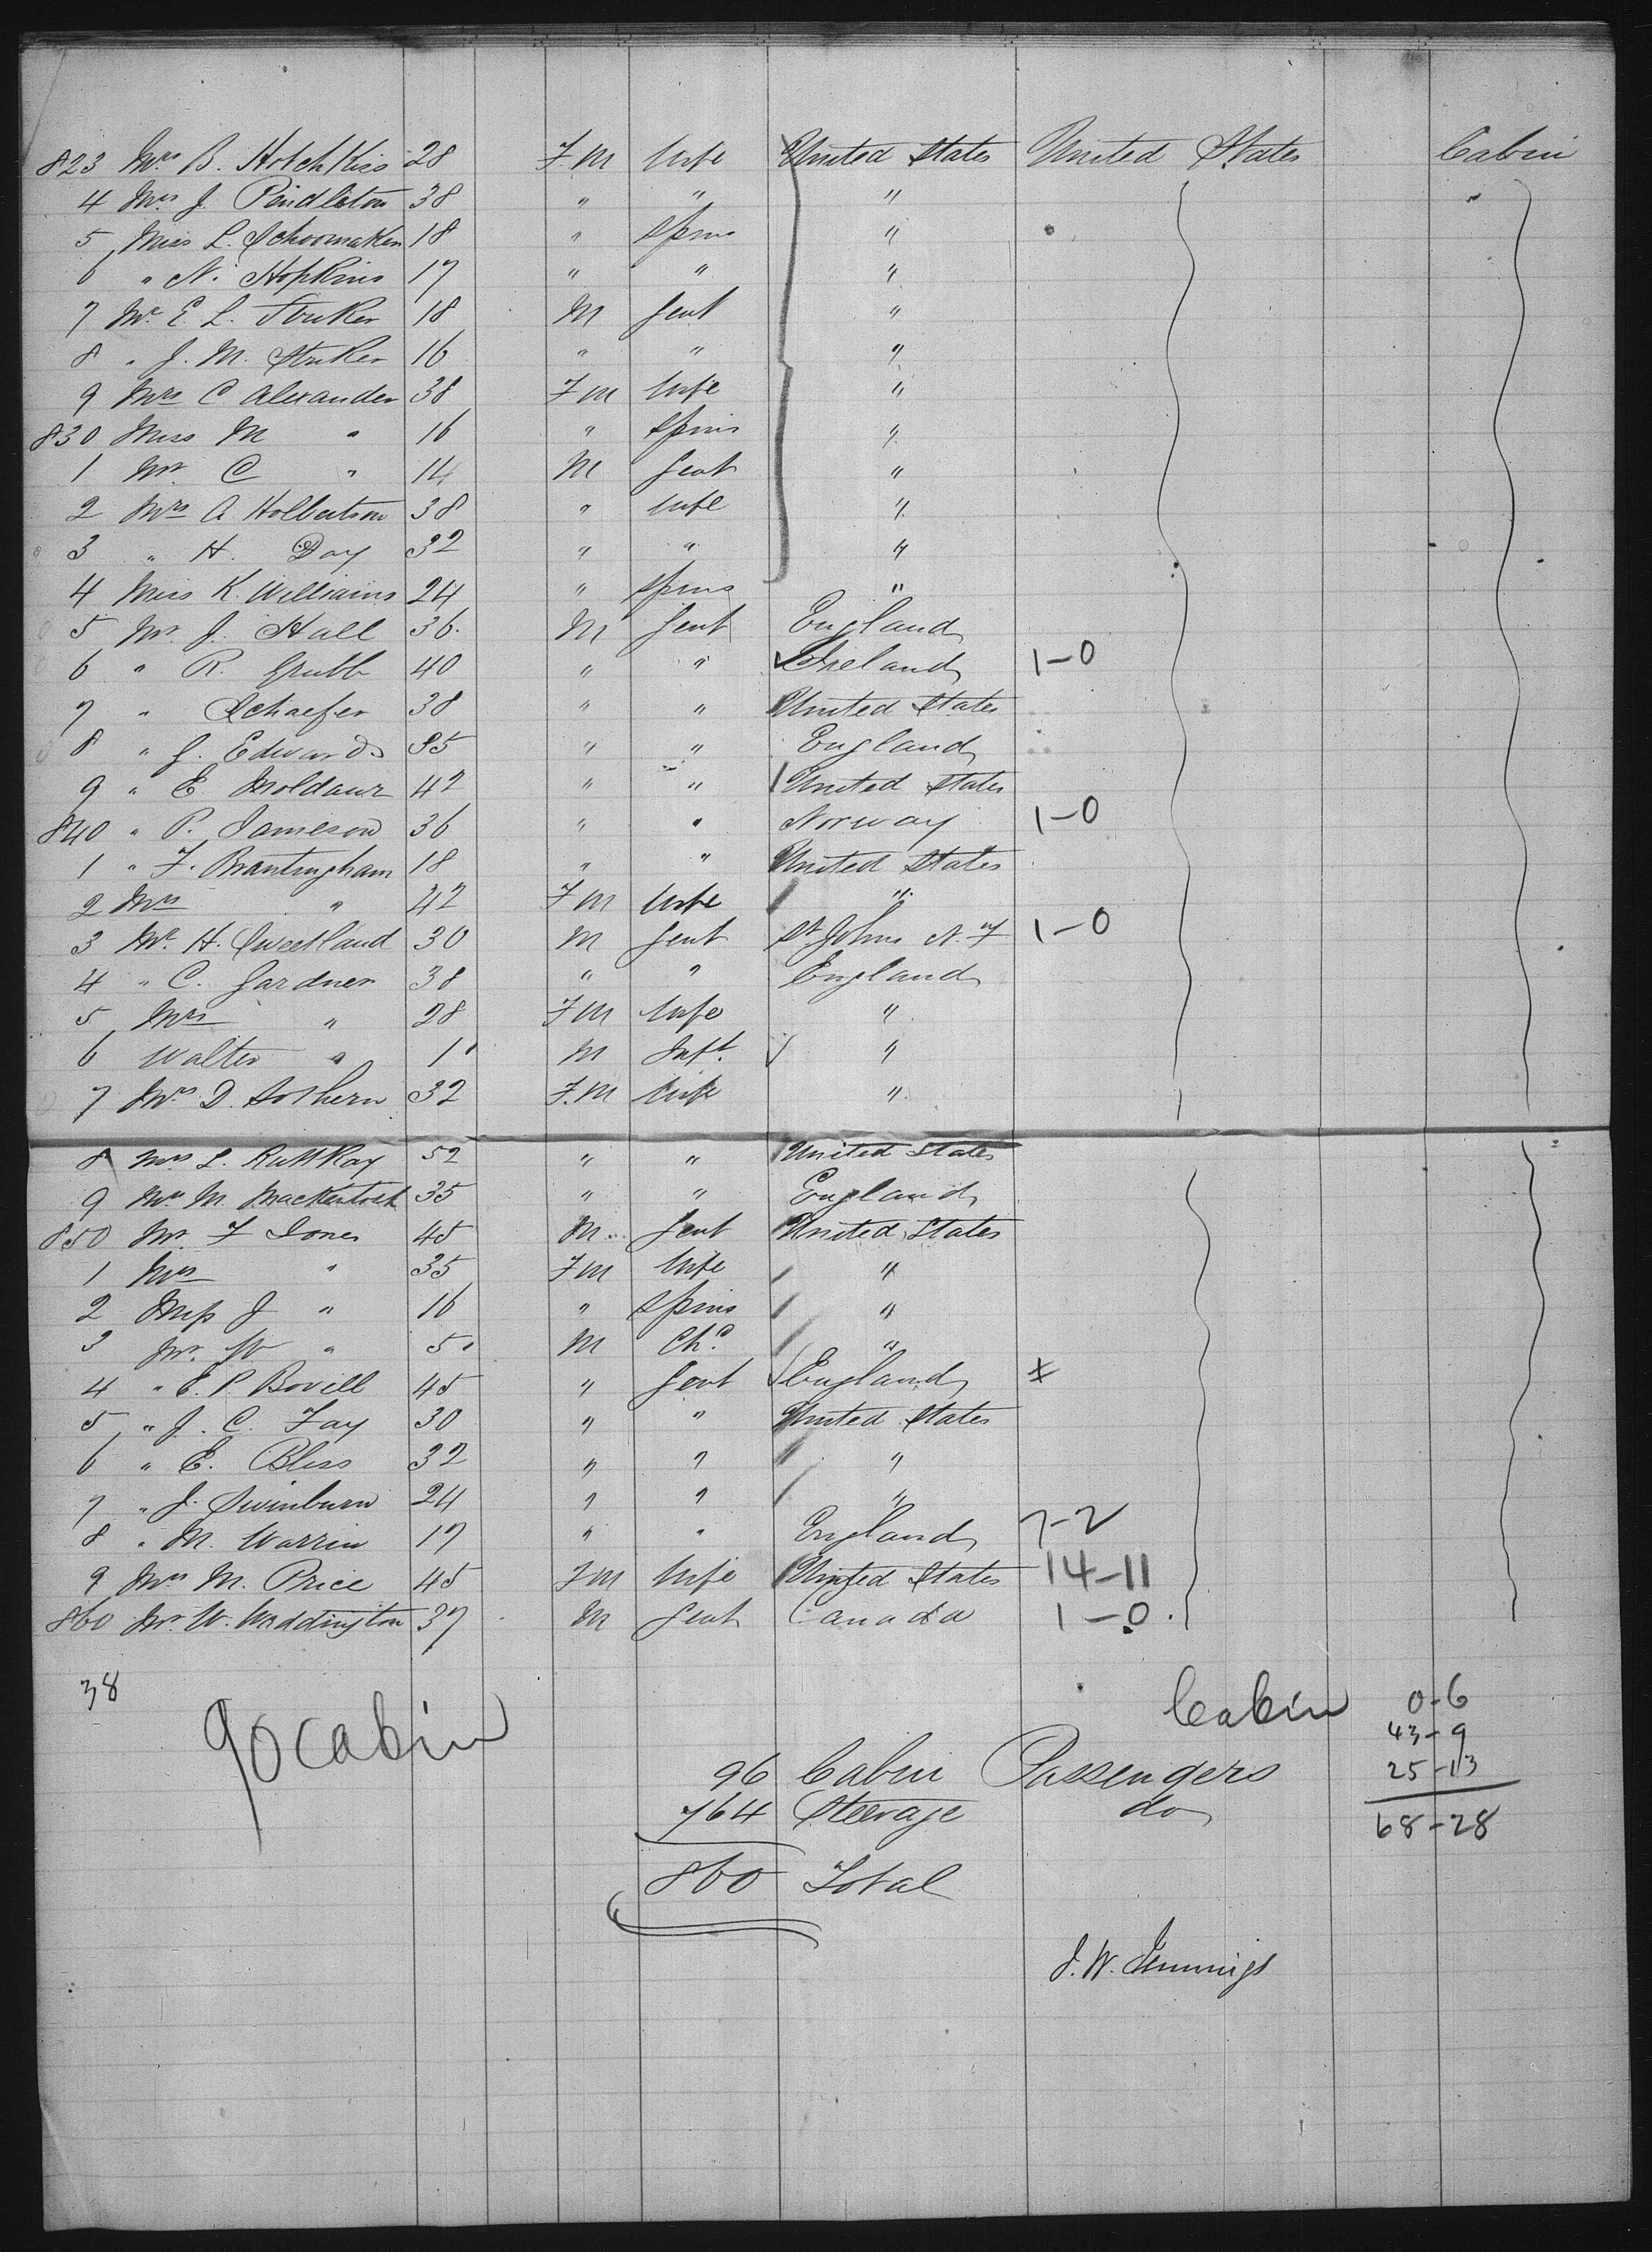 823 Mrs B. Hotchkiss 28 F.M Wife United States United States Cabin
4 Mrs J. Pendleton 38 " " " "
5 Miss L. Schoomaker 18 " Spins "
6 " N. Hopkins 17 " " "
7 Mr E. L. Striker 18 M Gent "
8 " J. M. Striker 16 " " "
9 Mrs C Alexander 38 F M Wife "
830 Miss M " 16 " Spins "
1 Mr C " 14 M Gent "
2 Mrs A Holbertson 38 " Wife "
3 " H. Day 32 " " "
4 Miss K. Williams 24 " Spins "
5 Mr J. Hall 36. M Gent England
6 " R. Grubb 40 " " Ireland 1-0
7 " Schaefer 38 " " United States
8 " J. Edwards 35 " " England
9 " E Moldaur 42 " " United States
840 " P. Jameson 36 " " Norway 1-0
1 " F. Brantingham 18 " " United States
2 Mrs " 42 F M Wife "
3 Mr H. Sweetland 30 M Gent St Johns N. F 1-0
4 " C. Gardner 38 " " England
5 Mrs " 28 F M Wife "
6 Walter " 1 M Inft. "
7 Mrs D. Sothern 32 F.M Wife "
8 Mrs L. Ruttkay 52 " " United States
9 Mrs M. Mackintosh 35 " " England
850 Mr F Jones 45 M Gent United States
1 Mrs " 35 F M Wife "
2 Miss J " 16 " Spins "
3 Mr. W " 5 M Chd "
4 " E. P. Bovill 45 " Gent England x
5 " J. C. Fay 30 " " United States
6 " E. Bliss 32 " " "
7 " J. Swinburn 24 " " "
8 " M. Warrin 17 " " England 7-2
9 Mrs M. Price 45 F M Wife United States 14-11
860 Mr. W. Waddington 37 M Gent Canada 1-0.
38
90 Cabin
Cabin 0-6
43-9
96 Cabin Passengers 25-13
764 Steerage do 68-28
860 Total
J. W. Jennings